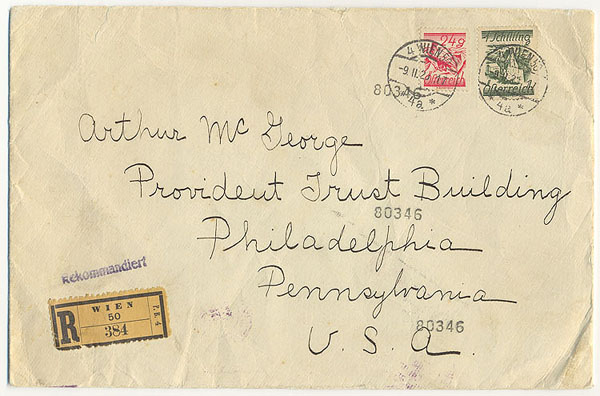 24g
1 Schilling
Österreich
4 WIEN
-9.II.25
4a
80346
Arthur Mc George
Provident Trust Building
80346
Philadelphia
Pennsylvania
80346
U. S. A.
Rekommandiert
R
WIEN
50
384